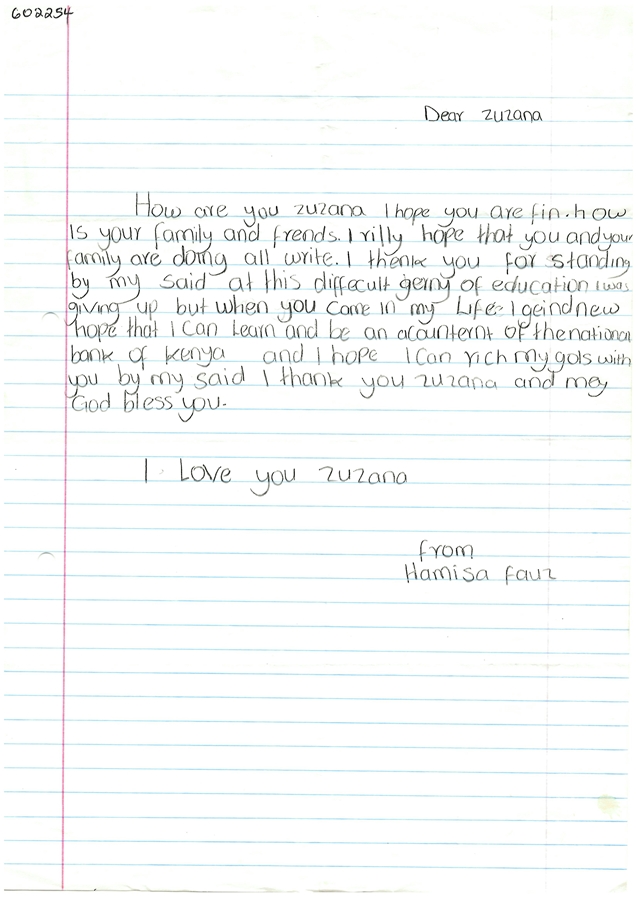 602254
Dear zuzana
How are you zuzana I hope you are fin. how
is your family and frends. I rilly hope that you and your
family are doing all write. I thenk you for standing
by my said at this diffecult gerny of education i was
giving up but when you came in my Life. I geind new
hope that I can Learn and be an acounternt of the national
bank of kenya and I hope I can rich my gols with
you by my said I thank you zuzana and mey
God bless you.
I Love you zuzana
from
Hamisa fauz